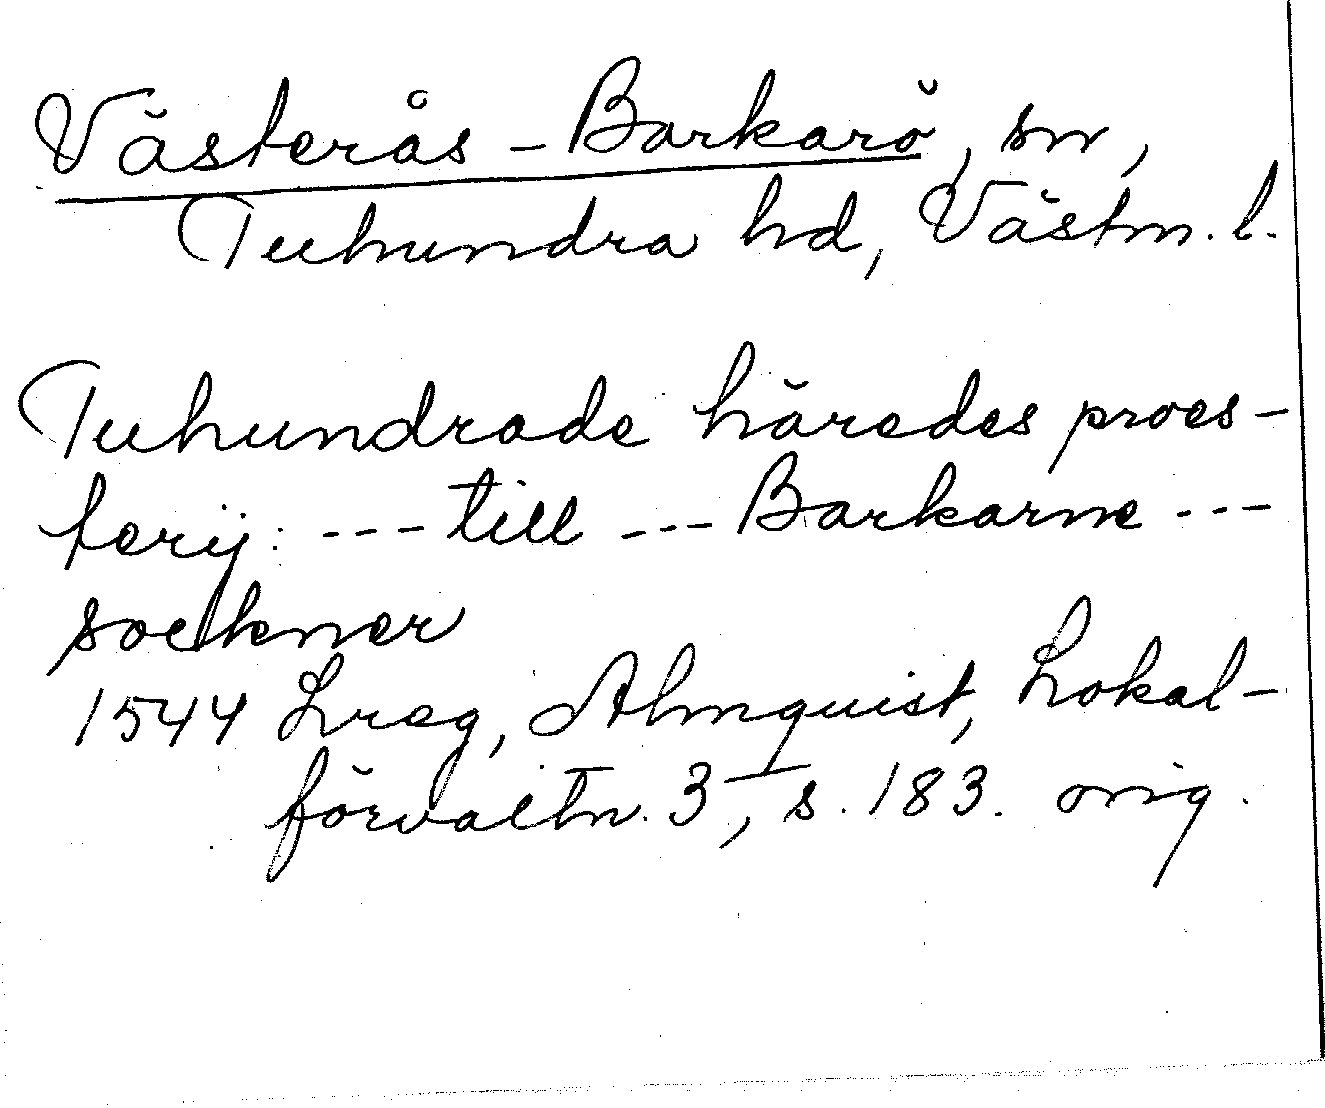 Västerås-Barkarö, sn,
Tuhundra hd, Västm. l.
Tuhundrade häredes proes-
terij: --- till --- Barkarne ---
socknner
1544 Lreg, Almquist, Lokal-
förvaltn. 3, s. 183. orig.